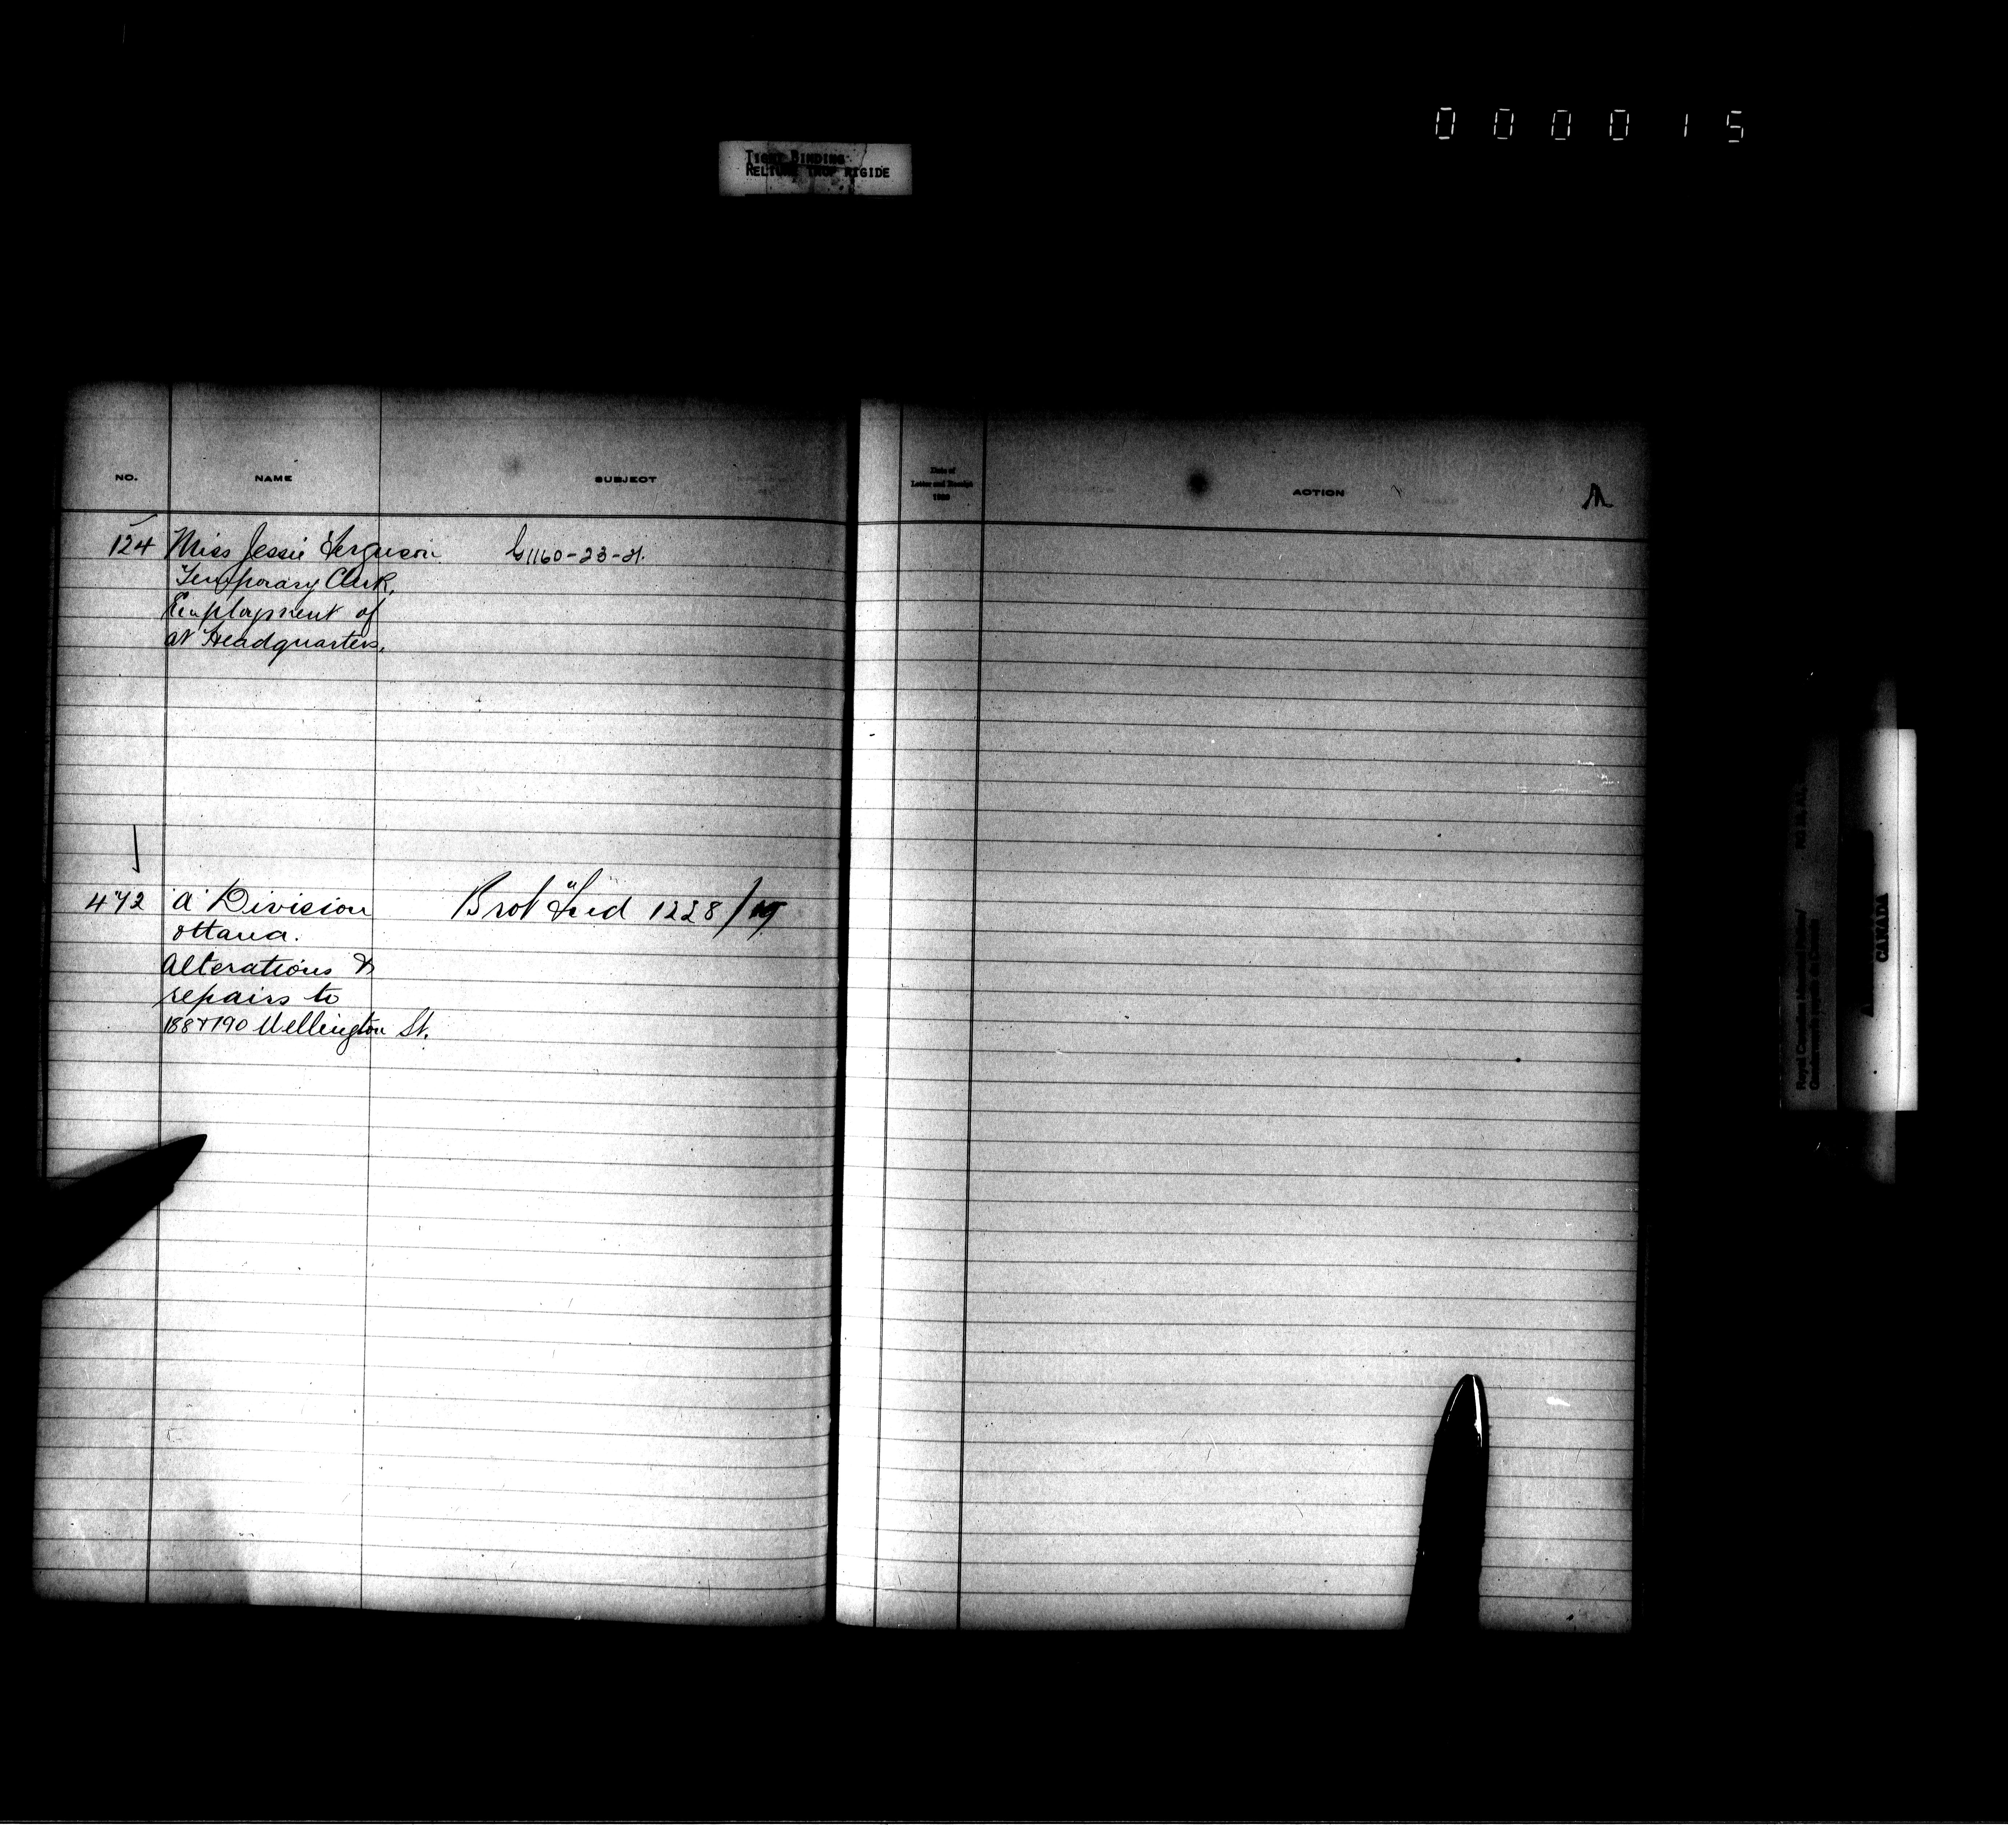 0 0 0 0 1 5
TIGHT BINDING
RELIURE TROP RIGIDE
NO. NAME SUBJECT
Date of
Letter and Receipt
ACTION
124 Miss Jessie Ferguson G1160-23-21.
Temporary Clerk,
Employment of
at Headquarters,
472 "A" Division Brot Fwd 1228/19
Ottawa.
Alterations &
repairs to
188 & 190 Wellington St.
Royal Canadian Mounted Police/
Gendarmerie royale du Canada
CANADA